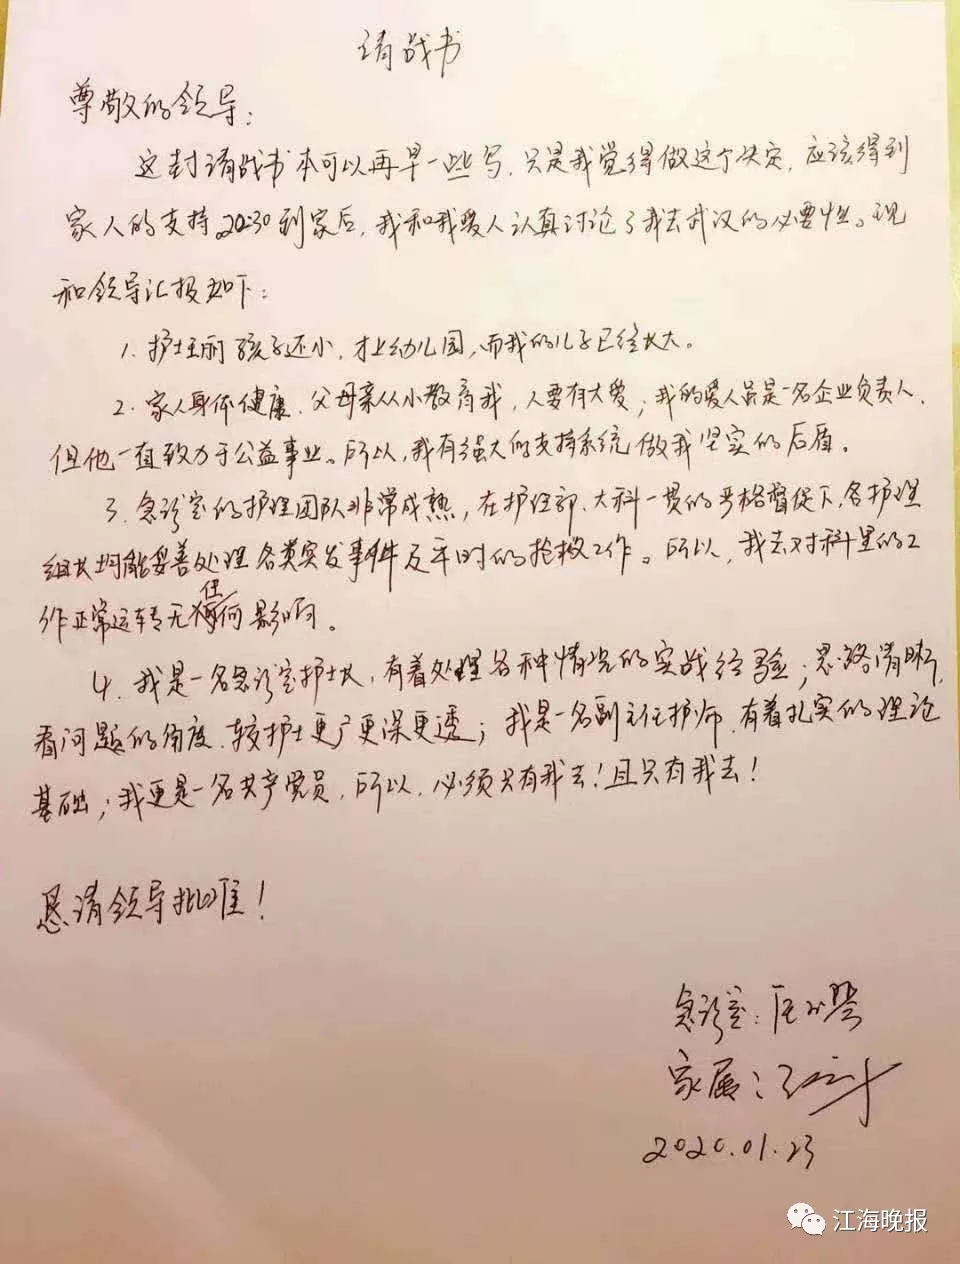 请战书
尊敬的领导：
这封请战书本可以再早一些写，只是我觉得做这个决定，应该得到
家人的支持。20:30到家后，我和我爱人认真讨论了我去武汉的必要性。现
和领导汇报如下：
1. 护士王丽孩子还小，才上幼儿园，而我的儿子已经长大。
2. 家人身体健康，父母亲从小教育我，人要有大爱；我的爱人虽是一名企业负责人，
但他一直致力于公益事业。所以，我有强大的支持系统做我坚实的后盾。
3. 急诊室的护理团队非常成熟，在护理部、大科一贯的严格督促下，各护理
组长均能妥善处理各类突发事件及平时的抢救工作。所以，我去对科里的工
作正常运转无任何影响。
4. 我是一名急诊室护士长，有着处理各种情况的实战经验；思路清晰，
看问题的角度，较护士更广更深更透；我是一名副主任护师，有着扎实的理论
基础；我更是一名共产党员，所以，必须只有我去！且只有我去！
恳请领导批准！
急诊室：
家属：
2020.01.23
江海晚报